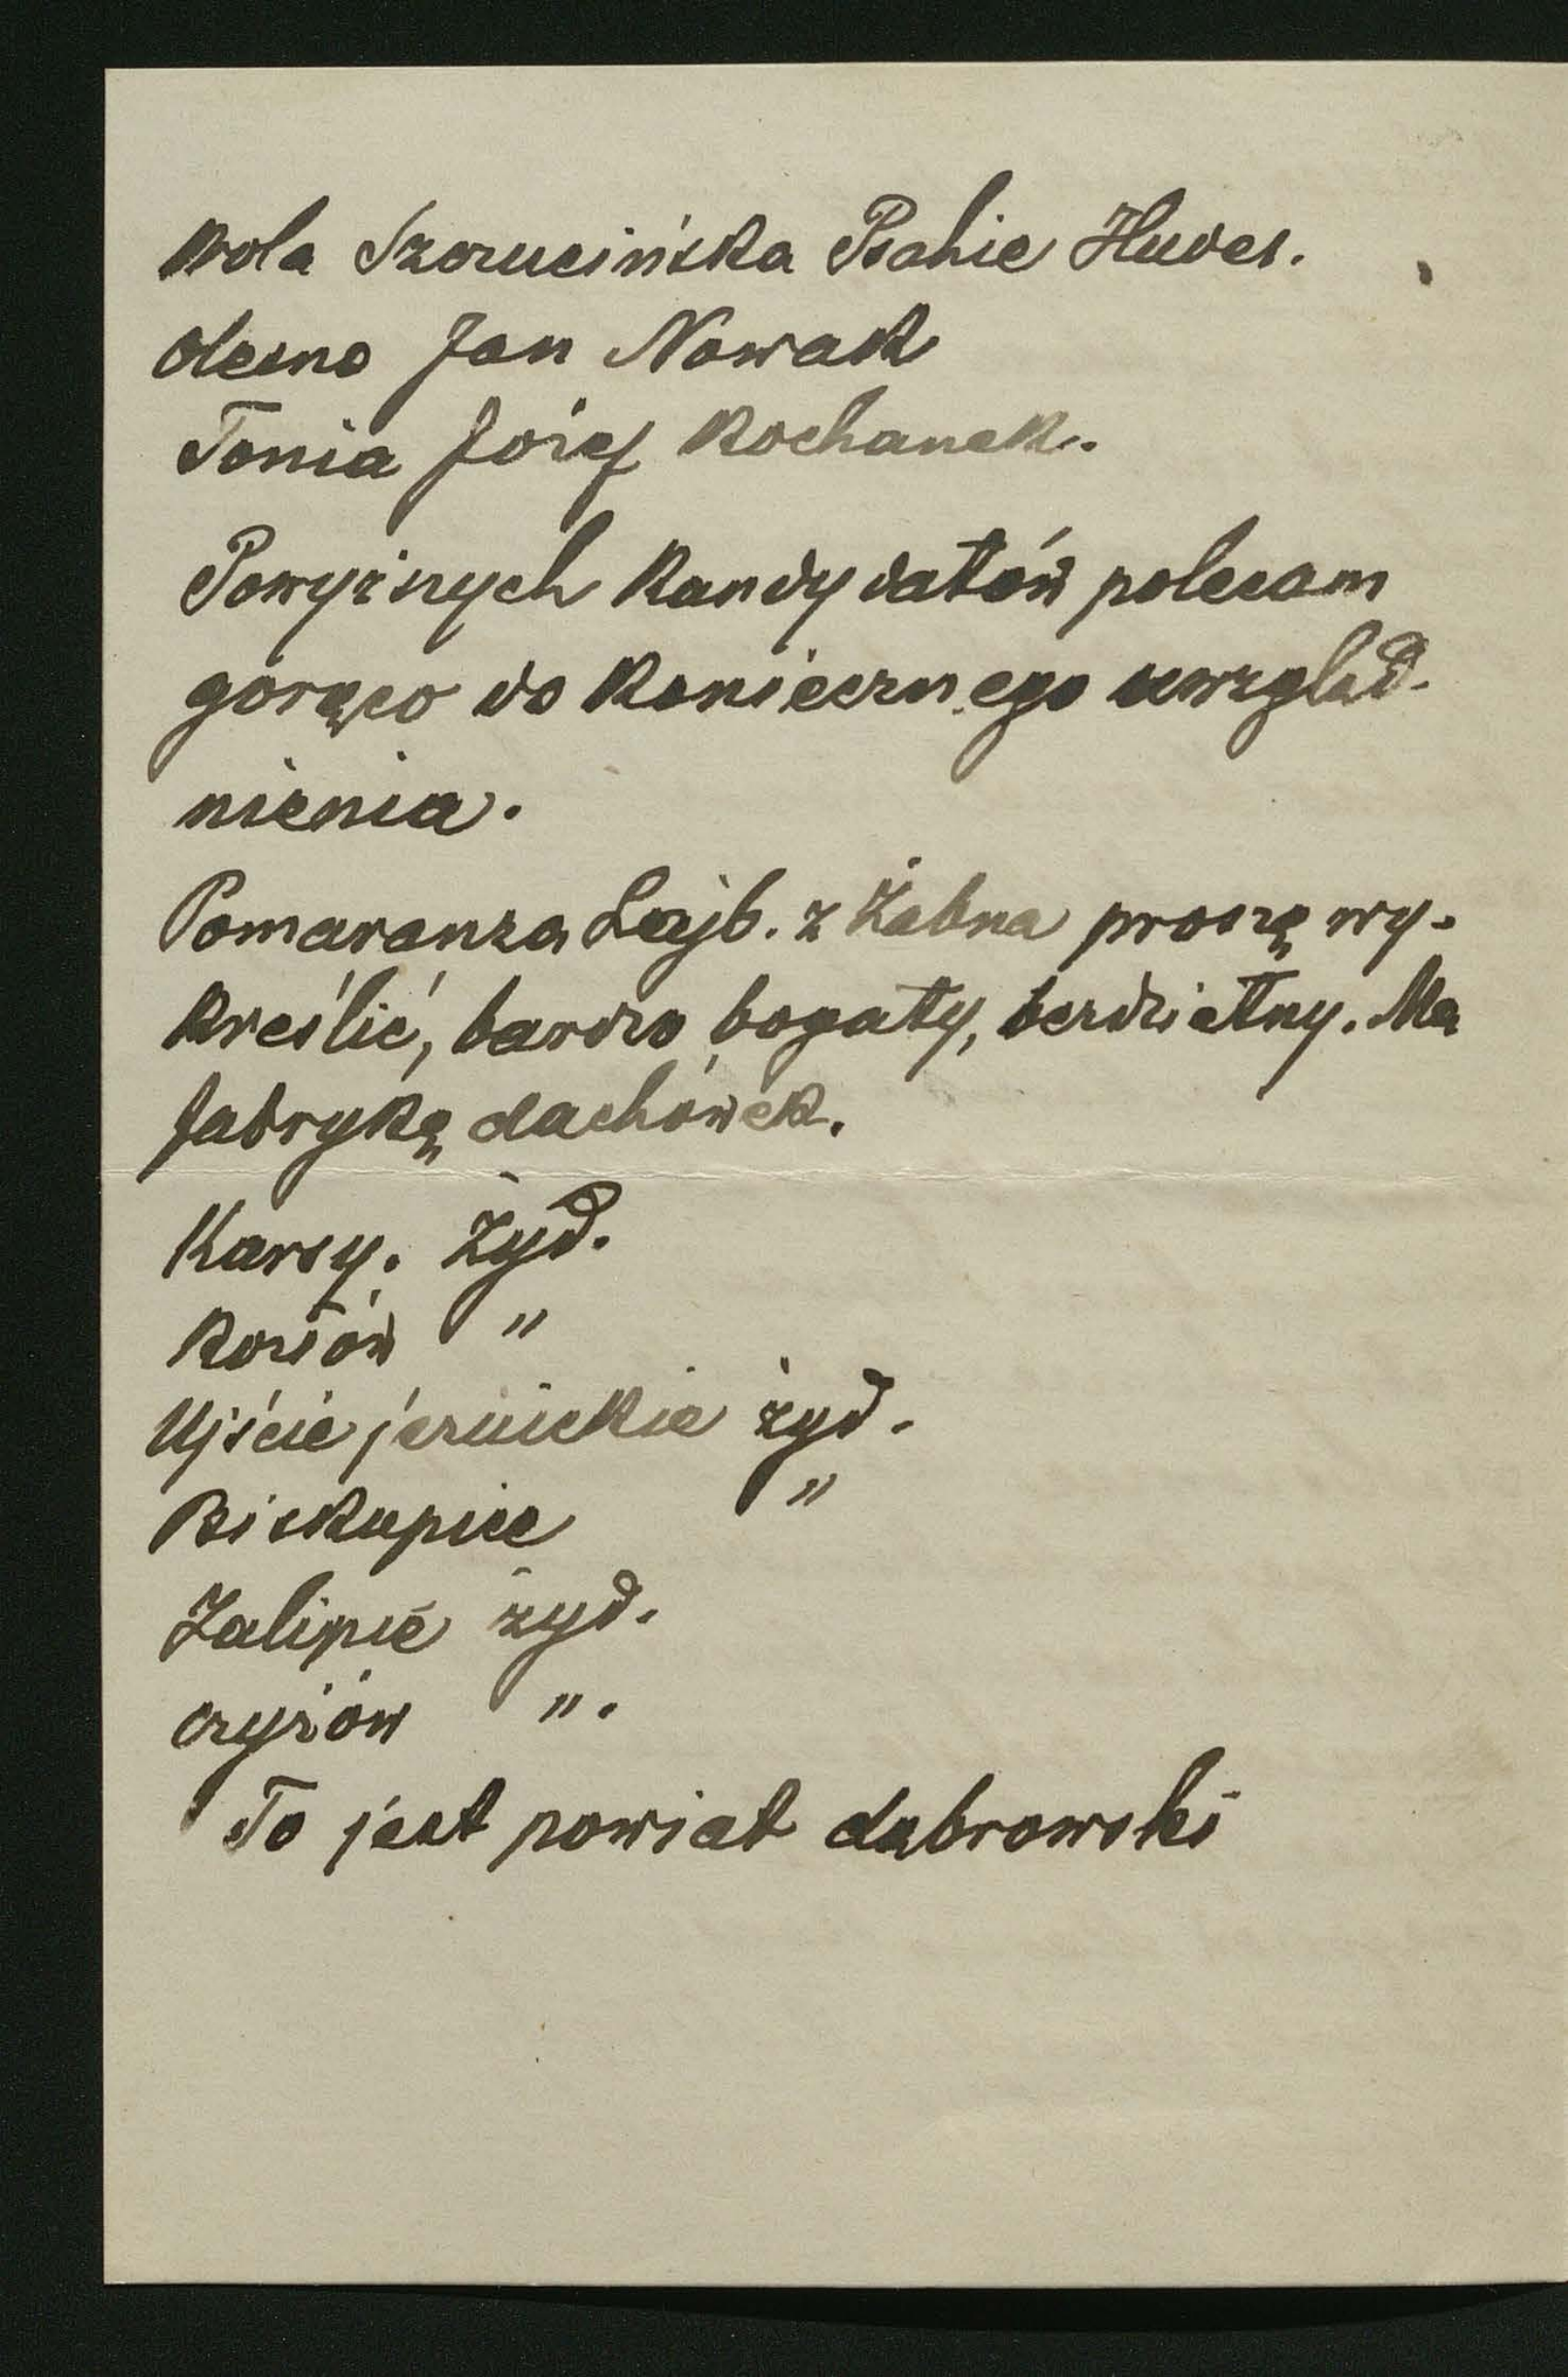 Wola Szczucińska Psahie Hudes.
Olesno Jan Nowak
Tonia Józef Kochanek.
Powyższych kandydatów polecam
gorąco do koniecznego uwzględ-
nienia.
Pomaranza Lajb. z Żabna proszę wy-
kreślić, bardzo bogaty, bezdzietny. Ma
fabrykę dachówek.
Karsy. Żyd.
Kozłów "
Ujście jezuickie żyd.
Biskupice "
Zalipie żyd.
czyżów ".
To jest powiat dąbrowski